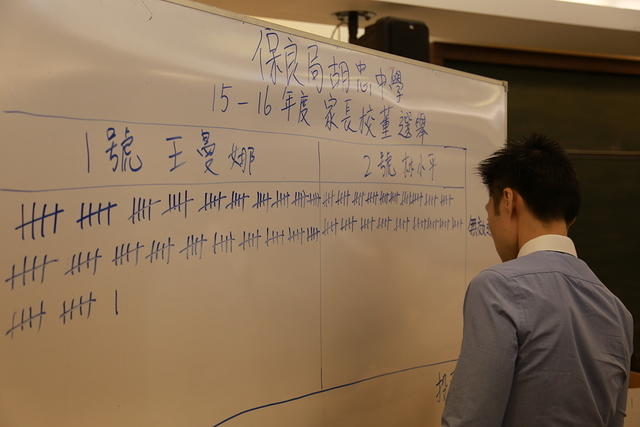 保良局胡忠中學
15-16年度 家長校董選舉
1號 王曼娜
2號 林小平
無效